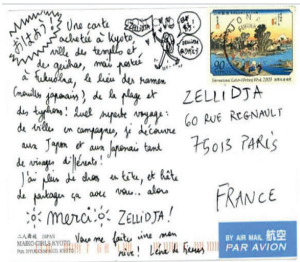 おけおう!
Une carte
achetée à Kyoto
ville des temples et
des geishas, mais postée
à Fukuoka, le lieu des ramen
(nouilles japonaises) de la plage et
des typhons! Quel superbe voyage:
de villes en campagnes, je découvre
un Japon et un Japonais tant
de visages différents!
J'ai plein de choses en tête, et hâte
de partager ça avec vous.. alors
merci ZELLIDJA!
Vous me faites vivre mon
rêve!
ZELLIDJA
ZELLIDJA
60 RUE REGNAULT
75013 PARIS
FRANCE
90
二人舞妓 JAPAN
MAIKO-GIRLS KYOTO
BY AIR MAIL 航空
PAR AVION